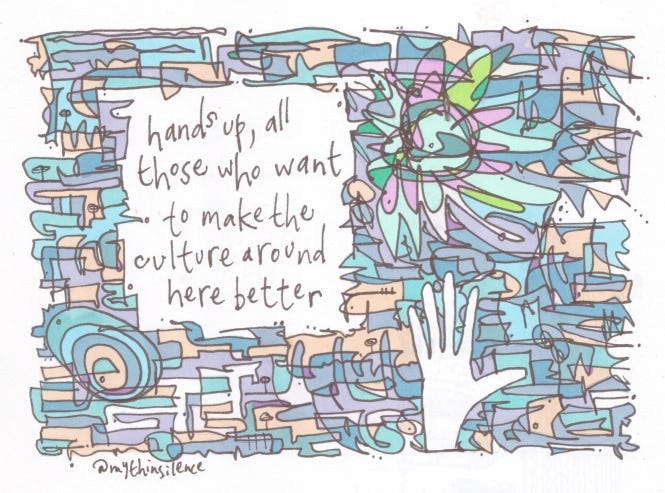 hands up, all
those who want
to make the
culture around
here better
@mythinsilence